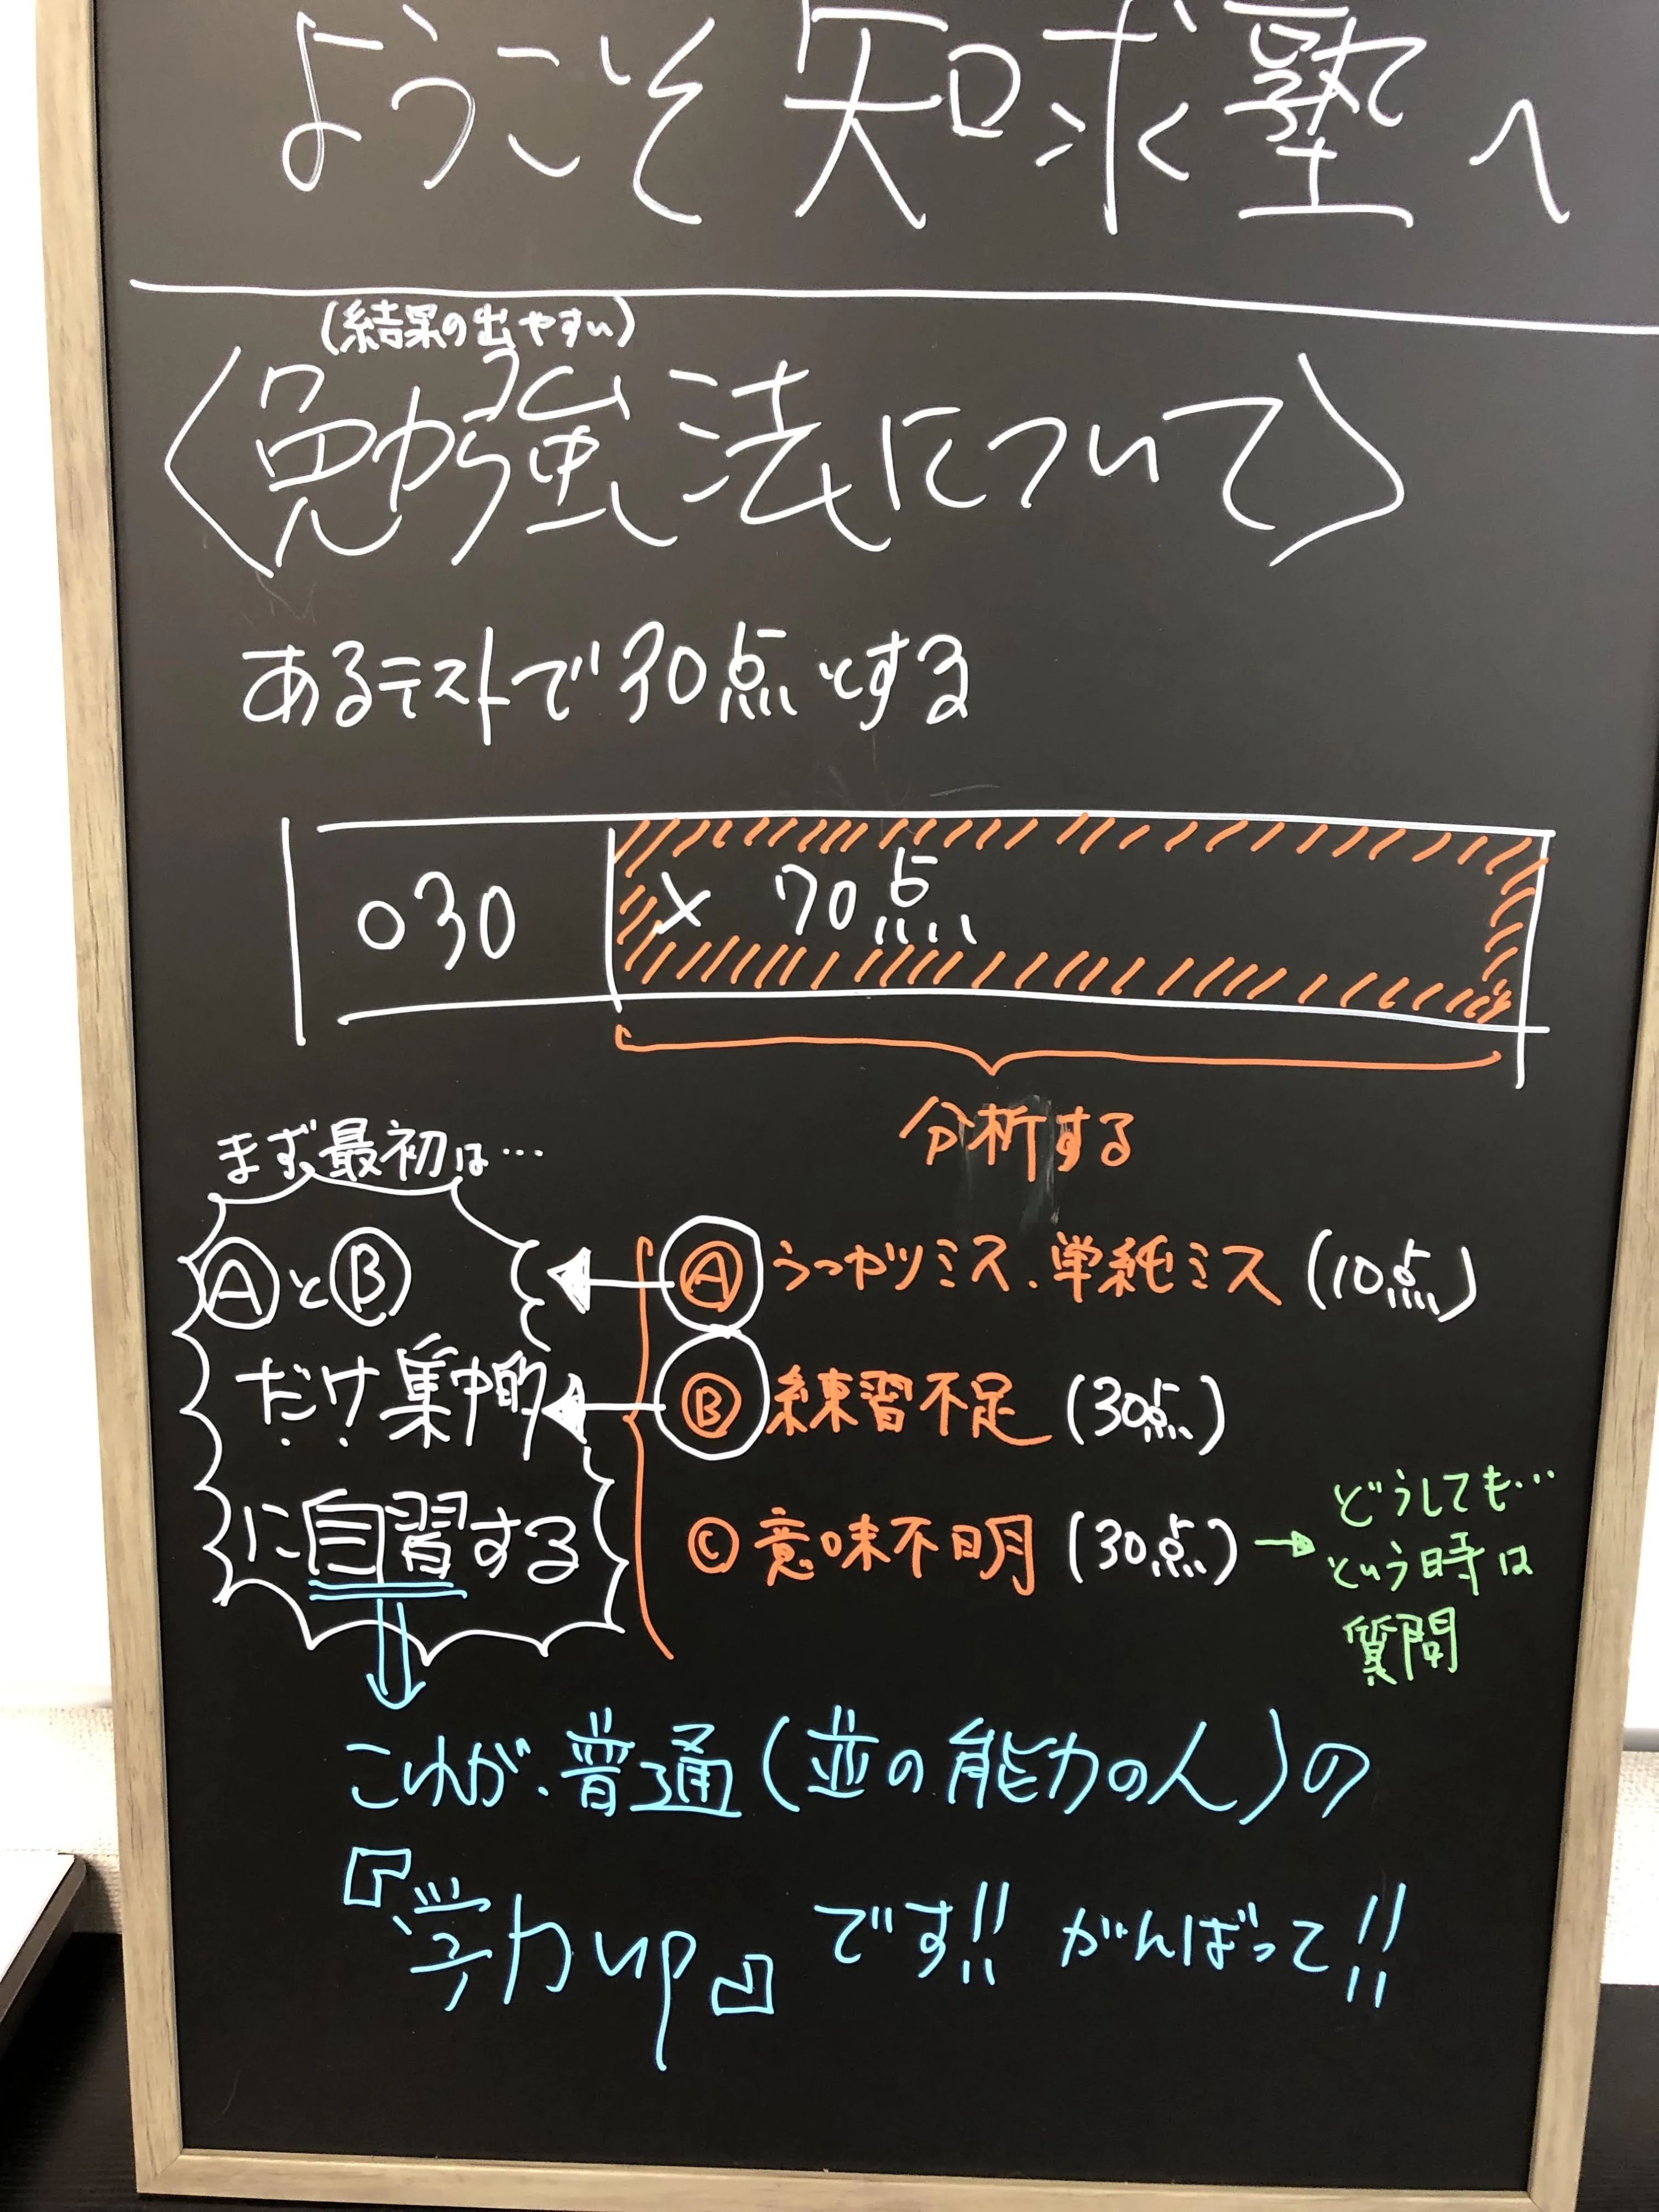 ようこそ知求塾へ
(結果の出やすい)
〈勉強法について〉
あるテストで30点とする
○30
× 70点
分析する
まず最初は…
ⒶとⒷ
だけ集中的
に自習する
Ⓐ うっかりミス、単純ミス (10点)
Ⓑ 練習不足 (30点)
Ⓒ 意味不明 (30点) →
どうしても…
という時は
質問
これが、普通(並の能力の人)の
『学力up』です!! がんばって!!